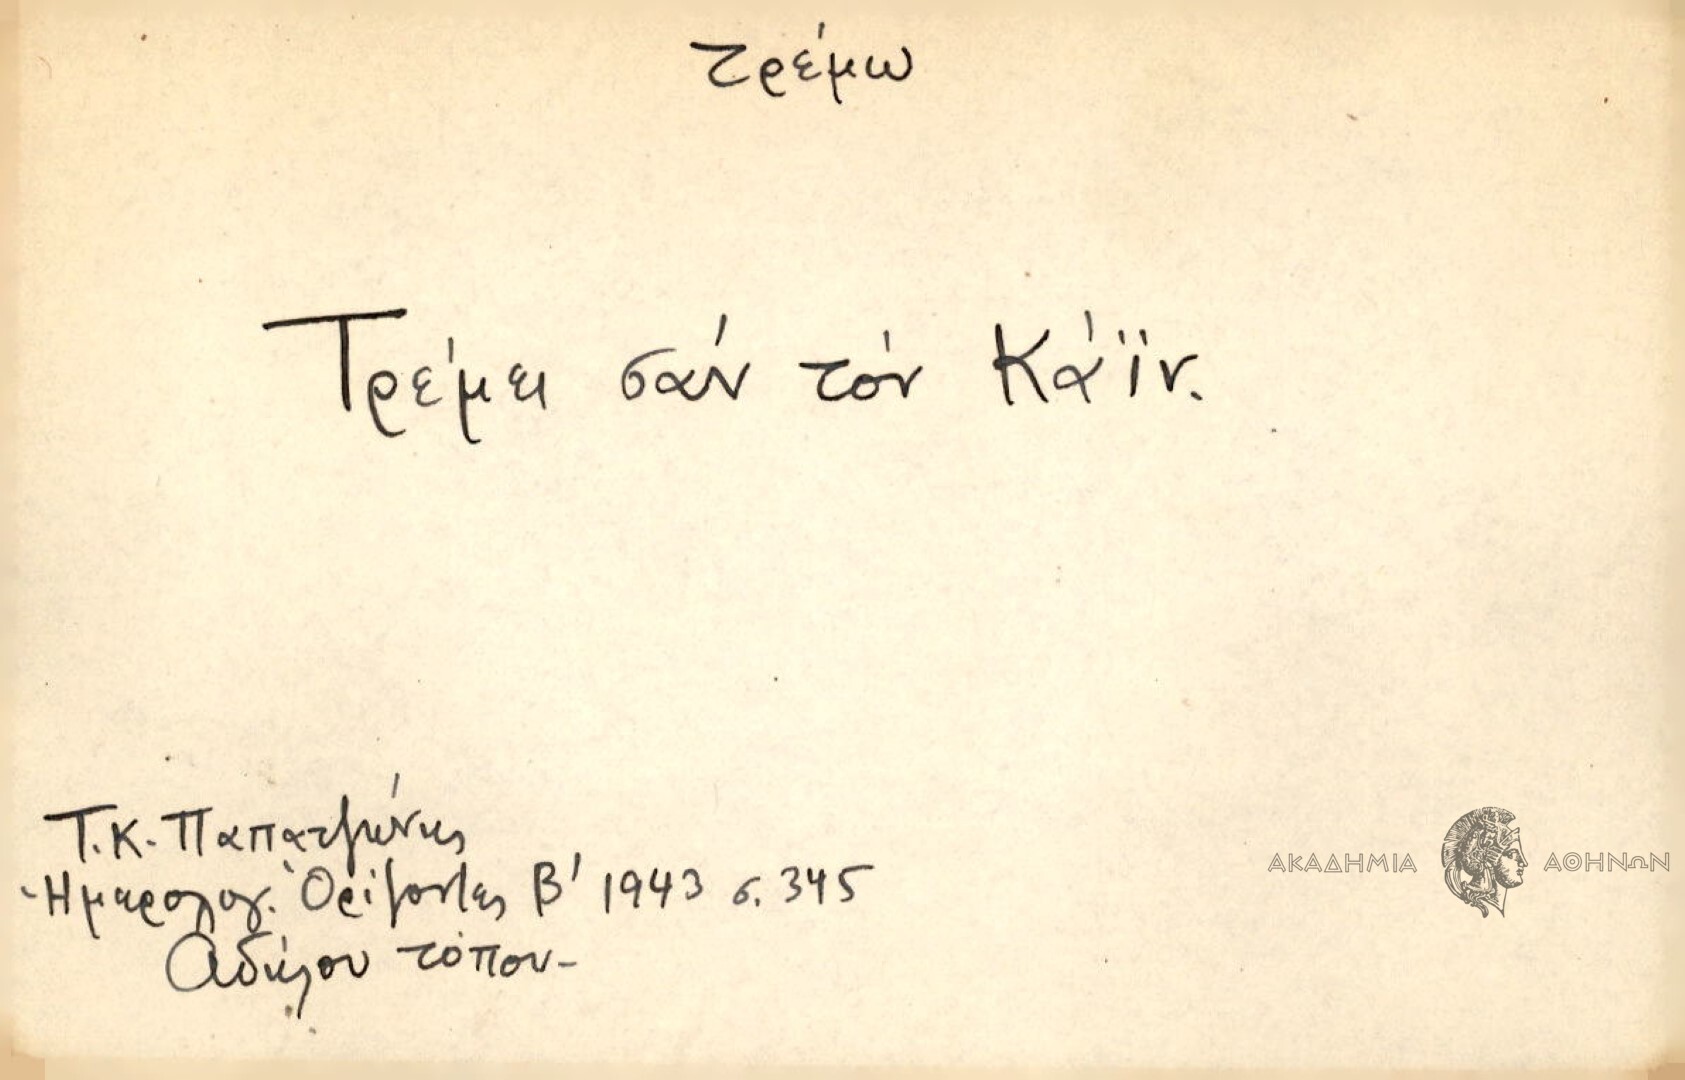 τρέμω
Τρέμει σάν τόν Κάϊν.
Τ. Κ. Παπατζώνης
Ἡμερολογ. Ὁρίζοντες Β' 1943 σ. 345
Ἀδήλου τόπου-
ΑΚΑΔΗΜΙΑ ΑΘΗΝΩΝ